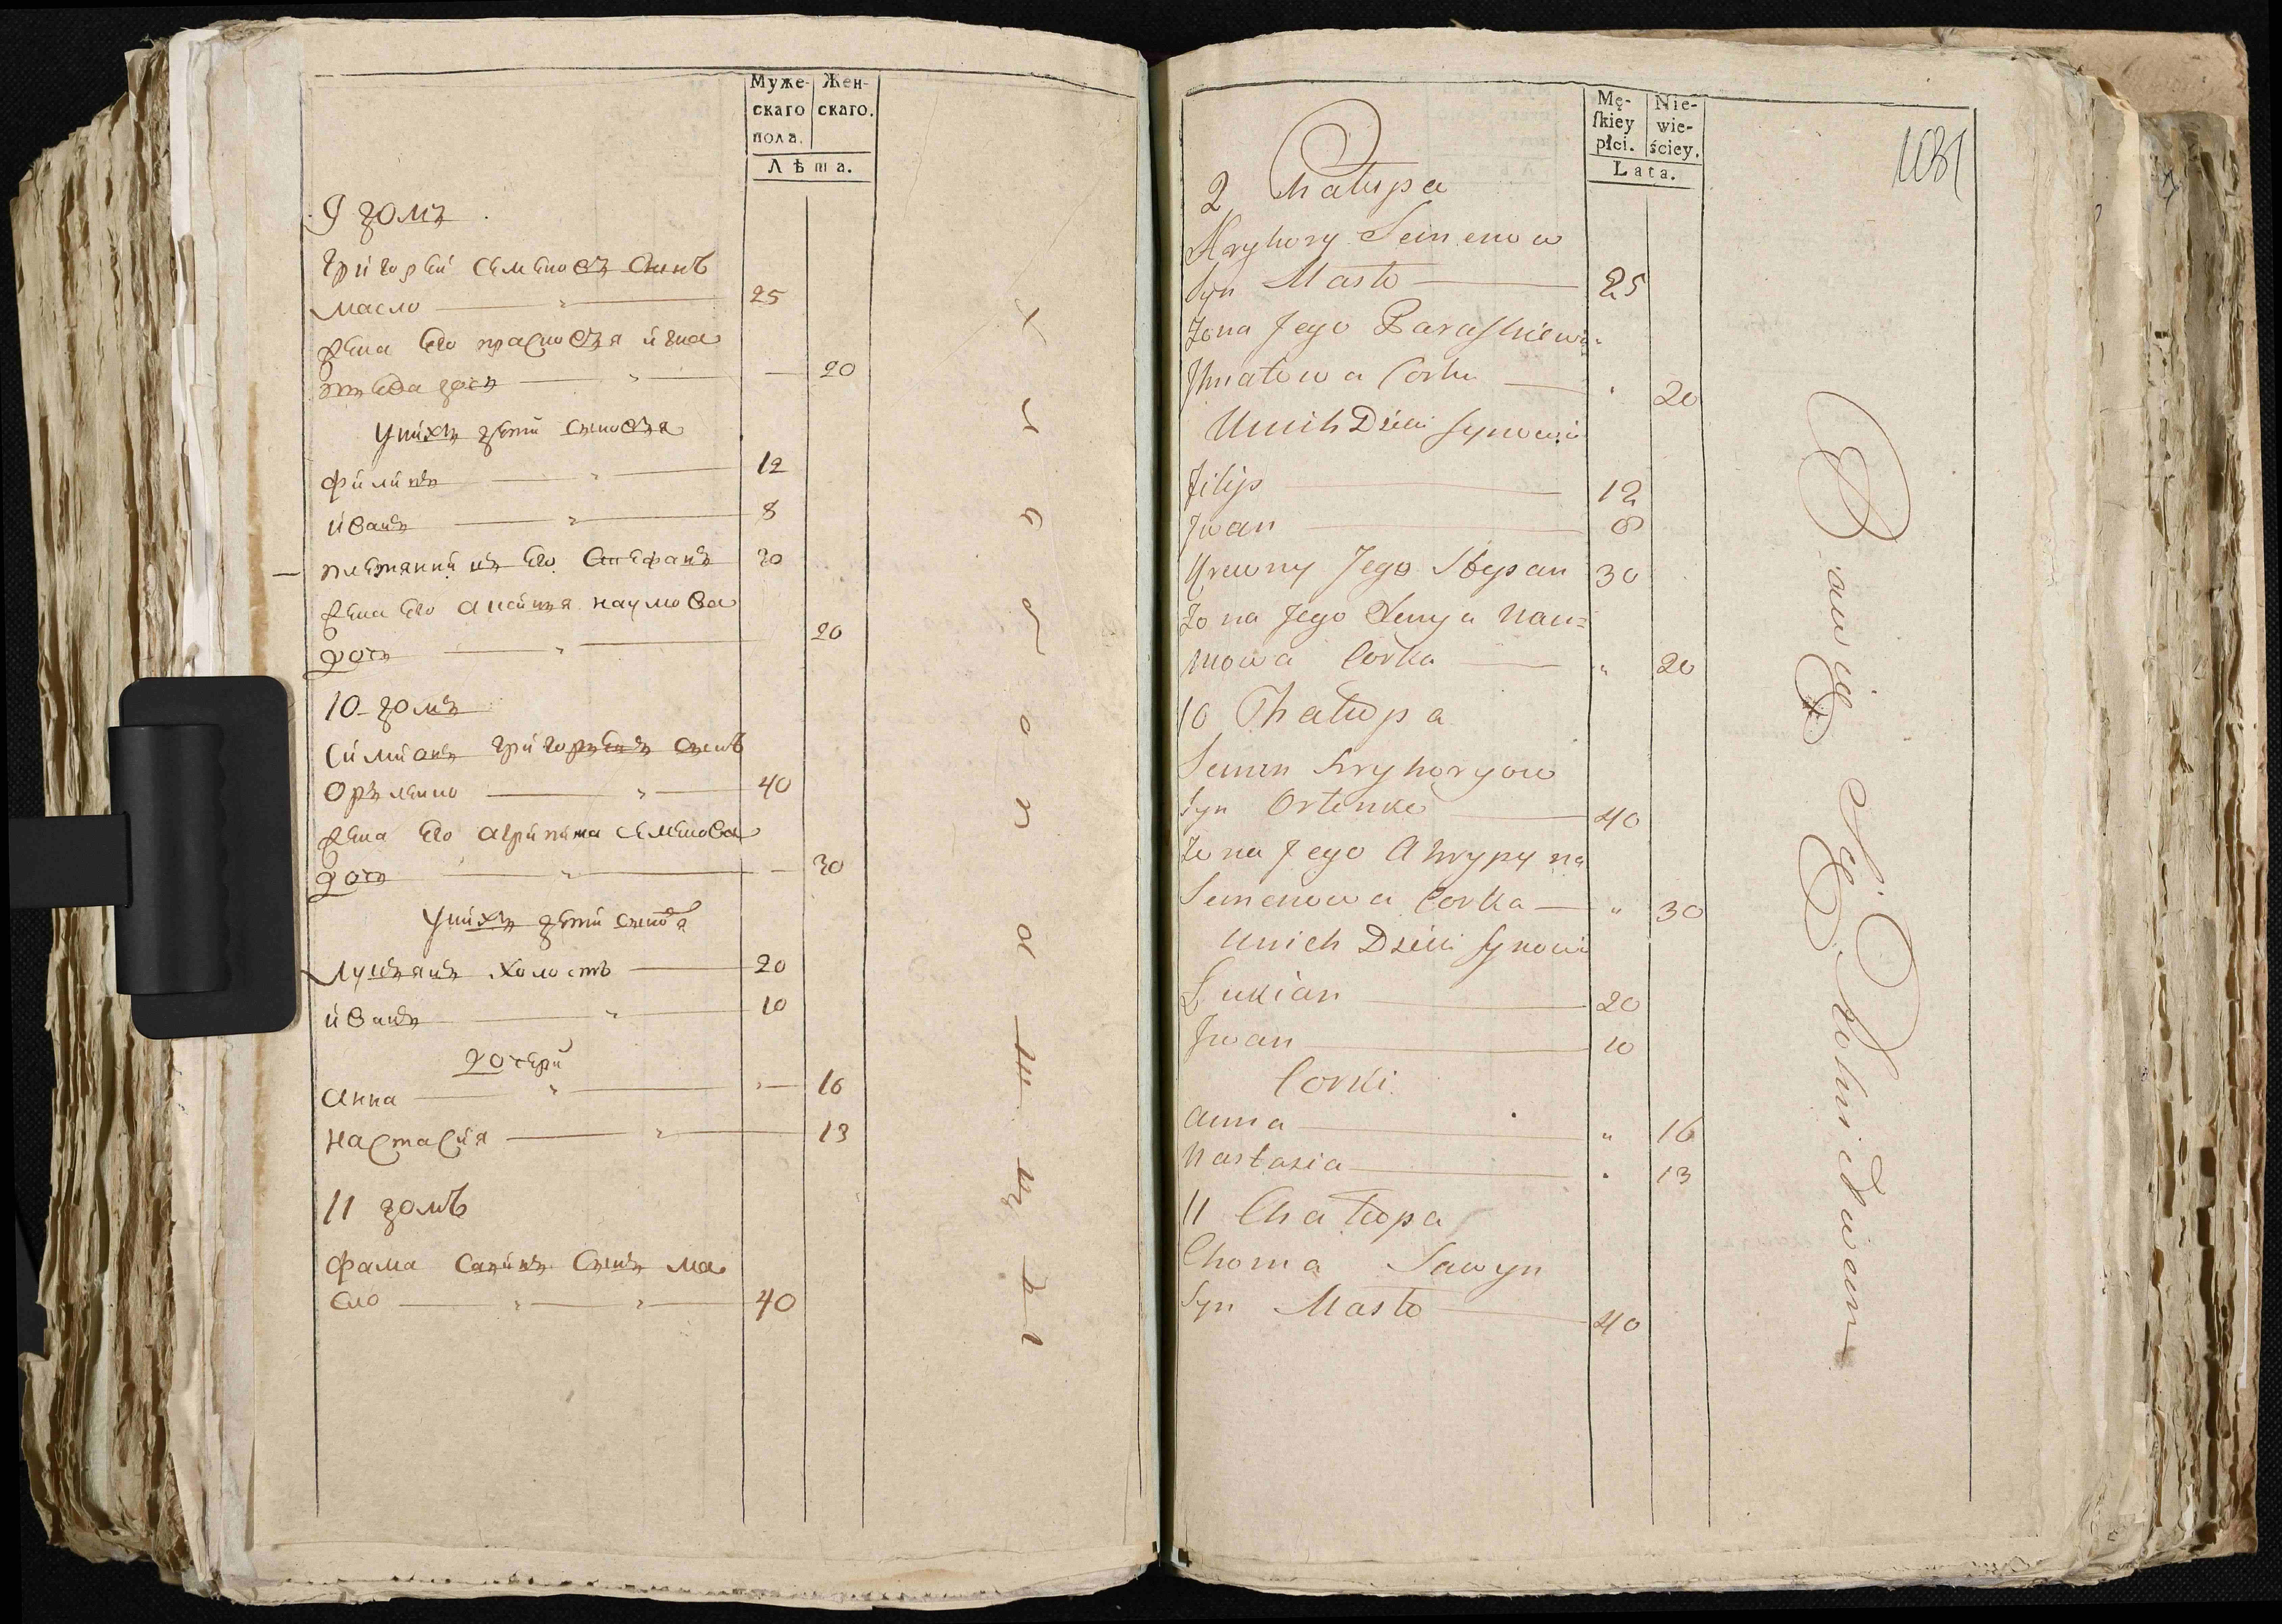 Муже-
скаго
пола.
Жен-
скаго.
Лѣта.
9 домъ
Григорей Семеновъ Сынъ
Масло 25
жена Его прасковья игна
тьева дочь 20
У нихъ дети сыновья
филипъ 12
иванъ 8
племянникъ Его Стефанъ 30
жена Его наумова
дочь 20
10 домъ
Симионъ григорьевъ сынъ
Орленко 40
жена Его агрипина Семенова
дочь 30
У нихъ дети сыновя
Лукьянъ холостъ 20
иванъ 10
дочери
Анна 16
Настасия 13
11 домъ
Фама Савинъ Сынъ Ма
сло 40
Mę-
ſkiey
płci.
Nie-
wie-
ściey.
Lata.
1031
Chałupa
Hryhory Semenow
Syn Masło 25
Żona Jego Paraſkiewia
Ihnatowa Corka 20
U nich Dzieci Synowie
Filip 12
Iwan 8
Krewny Jego Stepan 30
Żona Jego Nau=
mowa Corka 20
10 Chałupa
Semen Hryhoryow
Syn Orlenko 40
Żona Jego Ahrypyna
Semenowa Corka 30
U nich Dzieci Synowie
Łukian 20
Iwan 10
Corki
Anna 16
Nastazia 13
11 Chałupa
Choma Sawyn
Syn Masło 40
Bawią Się Rolnictwem